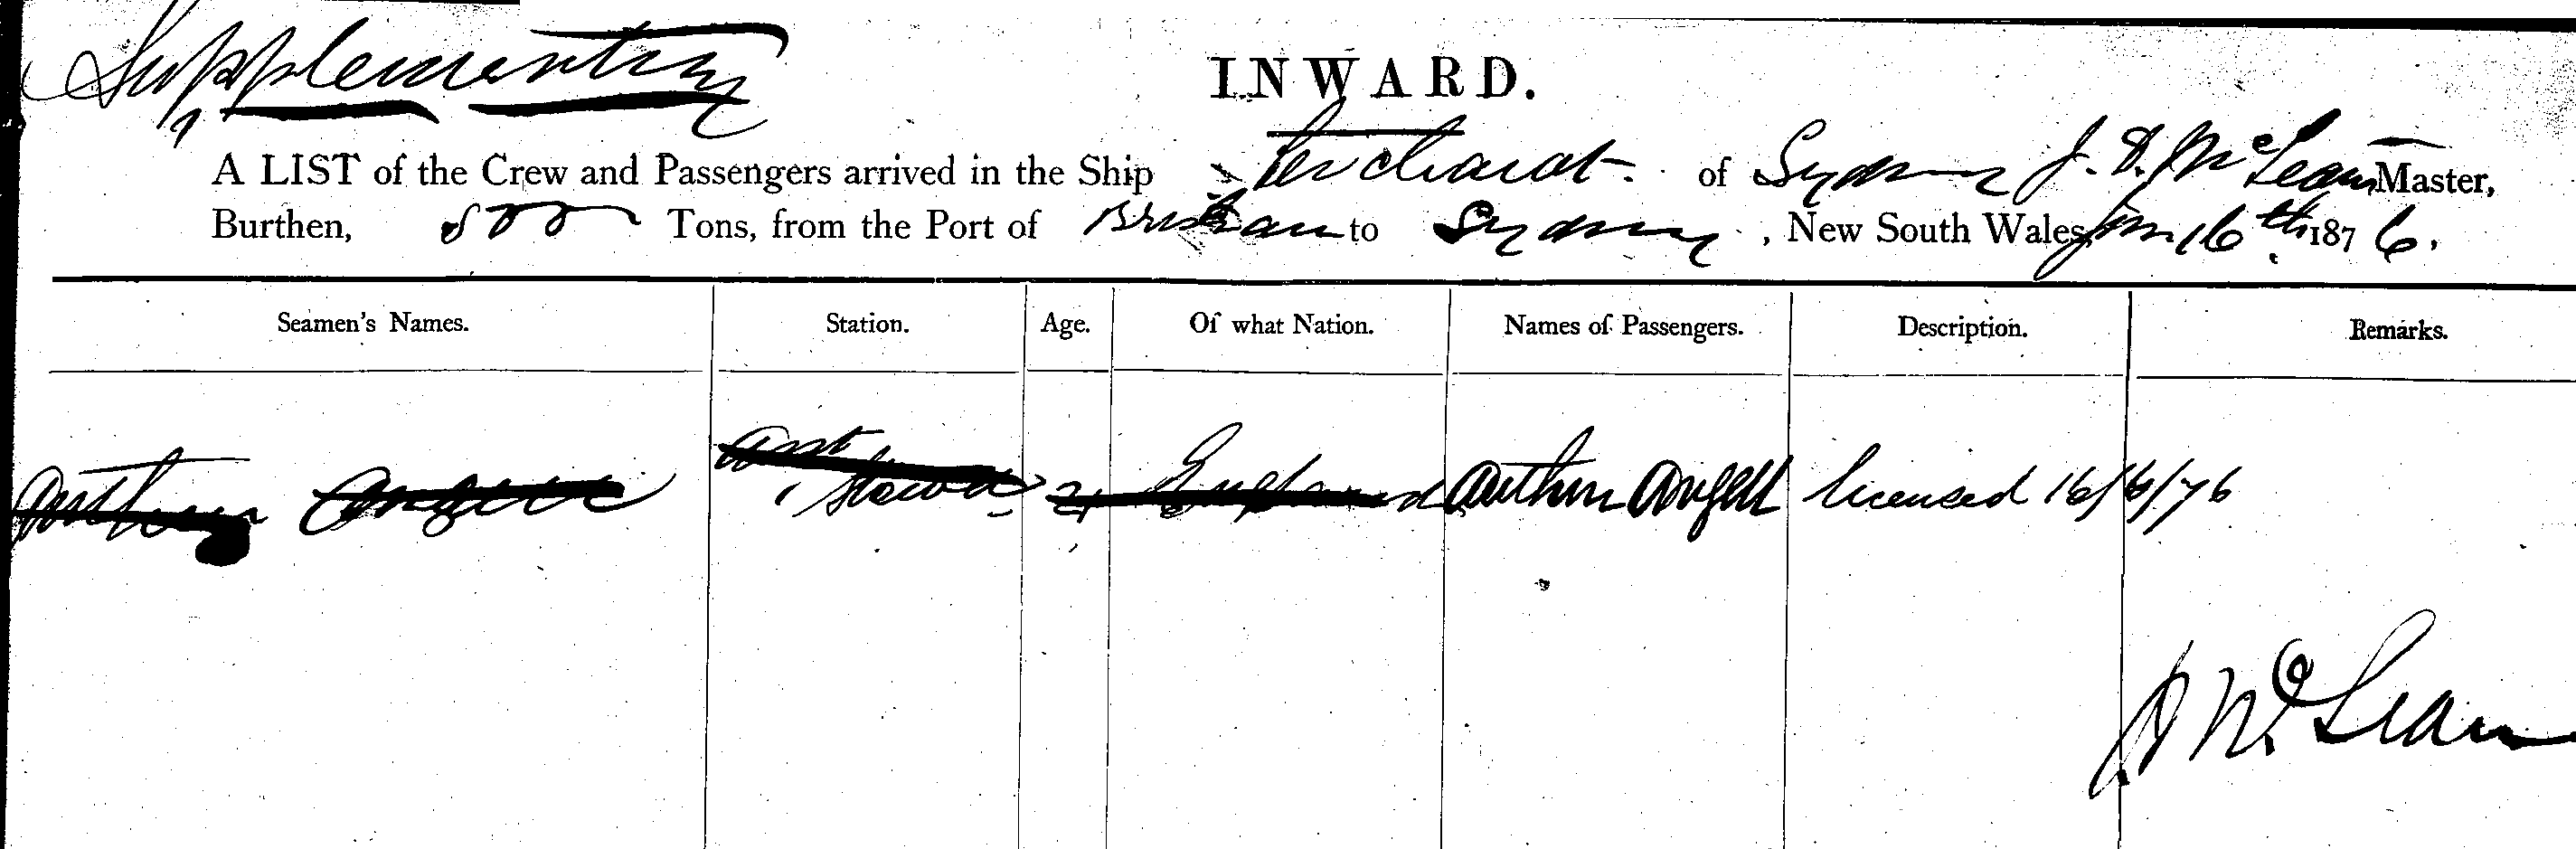 Supplementary
INWARD.
A LIST of the Crew and Passengers arrived in the Ship Leichardt. of Sydney J. D. McLean Master,
Burthen, 800 Tons, from the Port of Brisbane to Sydney, New South Wales, 16th 1876.
Seamen's Names. Station. Age. Of what Nation. Names of Passengers. Description. Remarks.
Arthur Angell Asst Steward 21 England Arthur Angell licensed 16/6/76
McLean